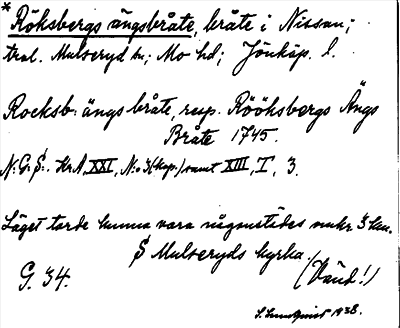 * Röksbergs ängsbråte, bråte i Nissan;
trol. Mulseryd sn; Mo hd; Jönköp. l.
Rocksb. ängs bråte, resp. Rööksbergs Ängs
Bråte 1745.
N: G: S: Kr.A. XXI, N:o 3 (kop.) samt XIII, T, 3.
Läget torde kunna vara någonstädes omkr. 3 km.
S Mulseryds kyrka.
(Vänd!)
G. 34.
S. Lundquist 1938.